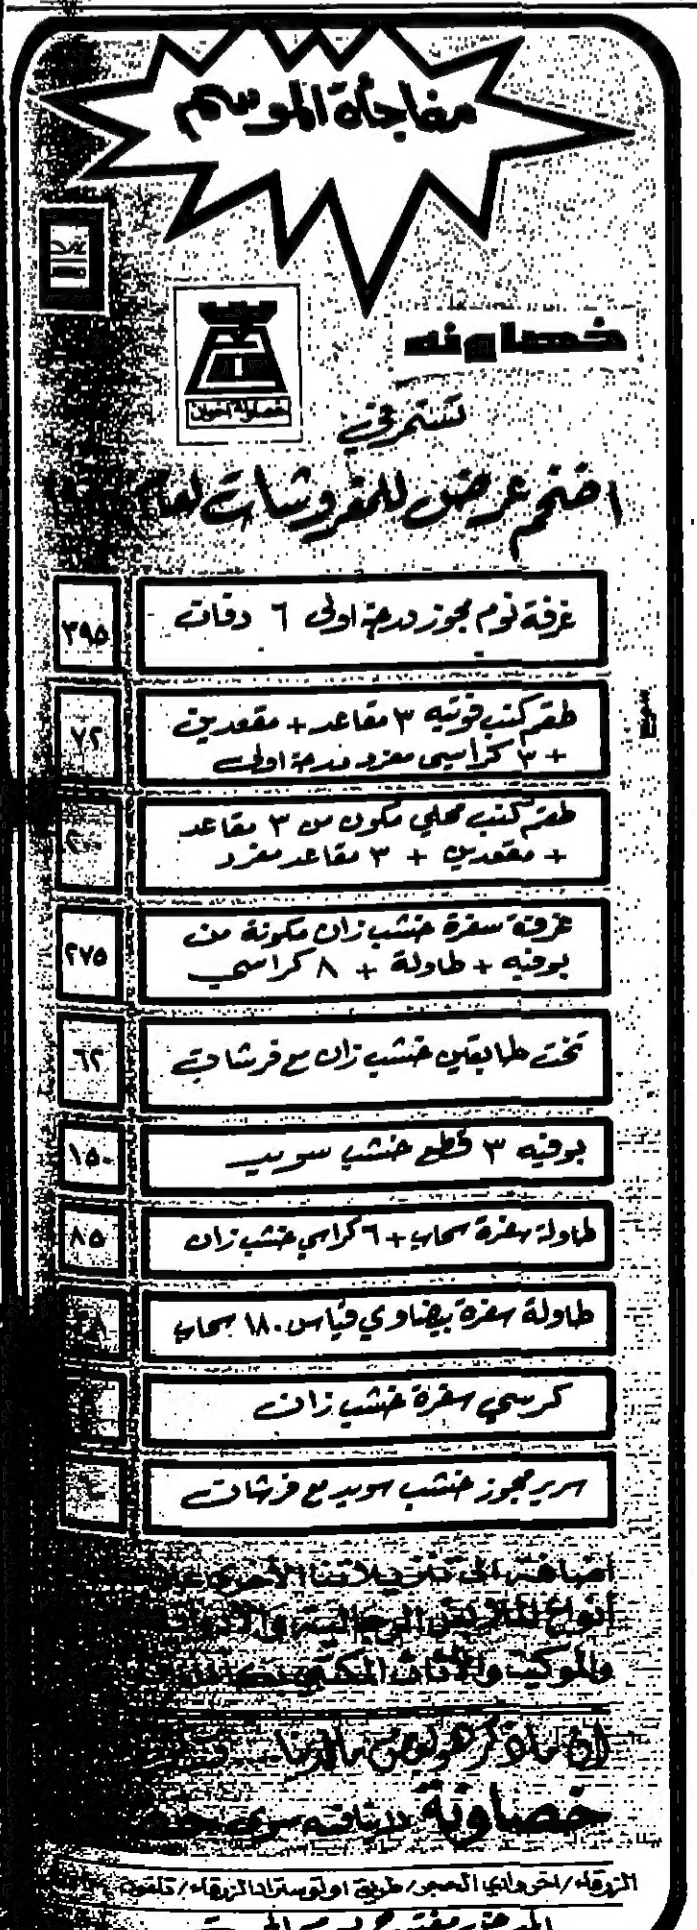 مفاجأة الموسم
خصاونه
خصاونة اخوان
تستمر في
اضخم عرض للمفروشات لعام
غرفة نوم مجوز درجة اولى ٦ دقات
٣٩٥
طقم كنب فوتيه ٣ مقاعد + مقعدين
+ ٣ كراسي مفرد درجة اولى
٧٢
طقم كنب محلي مكون من ٣ مقاعد
+ مقعدين + ٣ مقاعد مفرد
٢٠٠
غرفة سفرة خشب زان مكونة من
بوفيه + طاولة + ٨ كراسي
٢٧٥
تخت طابقين خشب زان مع فرشات
٦٢
بوفيه ٣ قطع خشب سويد
١٥٠
طاولة سفرة سحاب + ٦ كراسي خشب زان
٨٥
طاولة سفرة بيضاوي قياس ١٨٠ سحاب
كرسي سفرة خشب زان
سرير مجوز خشب سويد مع فرشات
اضافة الى تنزيلاتنا الأخرى
أنواع الملابس الرجالية والأدوات
والموكيت والأثاث المكتبي
ان ما ذكر هو بعض ما لدينا
خصاونة
الزرقاء / اخر وادي الحجر / طريق اوتوستراد الزرقاء / تلفون